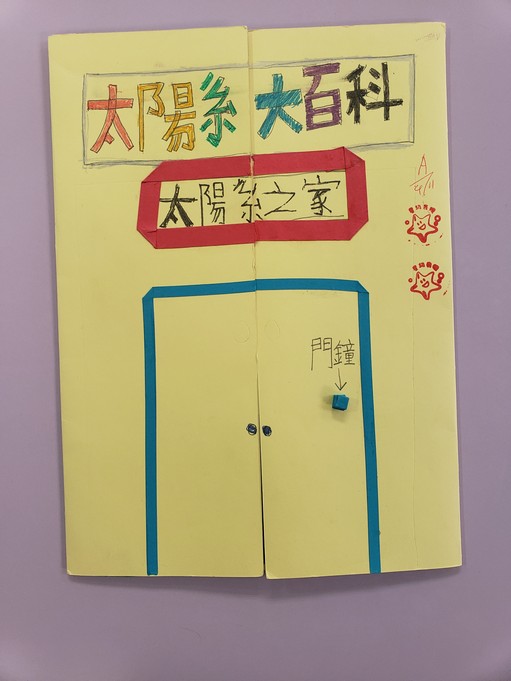 太陽糸 大百科
太陽糸之家
A
4/11
門鐘